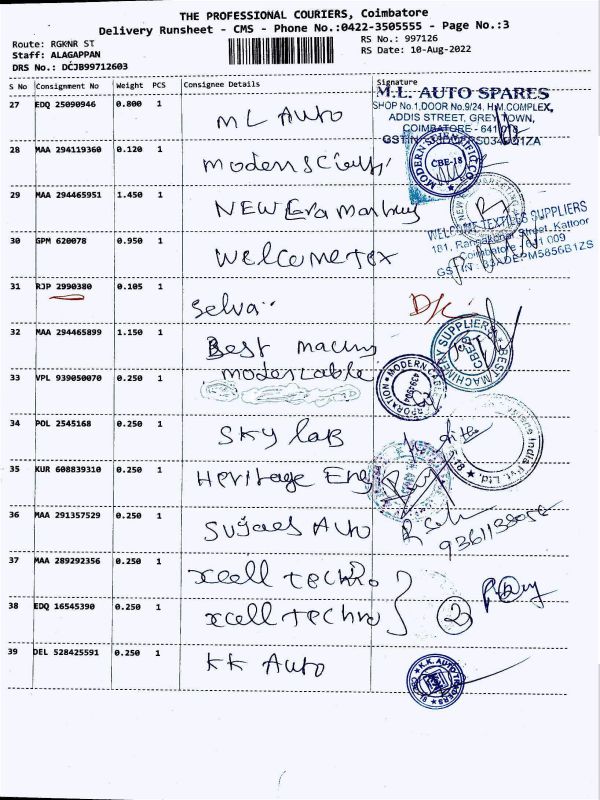 THE PROFESSIONAL COURIERS, Coimbatore
Delivery Runsheet - CMS - Phone No.:0422-3505555 - Page No.:3
Route: RGKNR ST
RS No.: 997126
Staff: ALAGAPPAN
RS Date: 10-Aug-2022
DRS No.: DCJB99712603
S No Consignment No Weight PCS Consignee Details Signature
M.L. AUTO SPARES
SHOP No.1,DOOR No.9/24, H.M.COMPLEX,
ADDIS STREET, GREY TOWN,
COIMBATORE - 641 018
27 EDQ 25090946 0.800 1 ML Auto
28 MAA 294119360 0.120 1 Modern
MODERN SCIENTIFIC CO
CBE-18
29 MAA 294465951 1.450 1 NEW Era
WELCOME TEXTILES SUPPLIERS
Street, Kattoor
Coimbatore - 641 009
30 GPM 620078 0.950 1 Welcome tex
31 RJP 2990380 0.105 1 Selva
32 MAA 294465899 1.150 1 Best
BEST MACHINERY SUPPLIERS
33 VPL 939050070 0.250 1
34 POL 2545168 0.250 1 SKY lab
India Pvt. Ltd.
35 KUR 608839310 0.250 1 Heritage Eng
36 MAA 291357529 0.250 1 Auto
37 MAA 289292356 0.250 1 xcell techno
38 EDQ 16545390 0.250 1 xcell techno
2
39 DEL 528425591 0.250 1 KK Auto
K.K. AUTO TRADERS